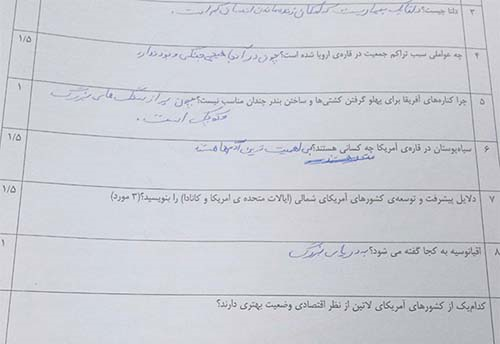 ۳ دلتا چیست؟ دلتا یک بیماریست که امکان زنده ماندن انسان کم است.
۱/۵
۴ چه عواملی سبب تراکم جمعیت در قاره‌ی اروپا شده است؟ چون در آنجا هیچ جنگی وجود ندارد
۱
۵ چرا کناره‌های آفریقا برای پهلو گرفتن کشتی‌ها و ساختن بندر چندان مناسب نیست؟ چون پر از سنگ های بزرگ
و کوچک است.
۱/۵
۶ سیاه‌پوستان در قاره‌ی آمریکا چه کسانی هستند؟ بی اهمیت ترین آدمها
هستند
۱/۵
۷ دلایل پیشرفت و توسعه‌ی کشورهای آمریکای شمالی (ایالات متحده ی امریکا و کانادا) را بنویسید؟ (۳ مورد)
۱
۸ اقیانوسیه به کجا گفته می شود؟ به دریای بزرگ
کدام‌یک از کشورهای آمریکای لاتین از نظر اقتصادی وضعیت بهتری دارند؟